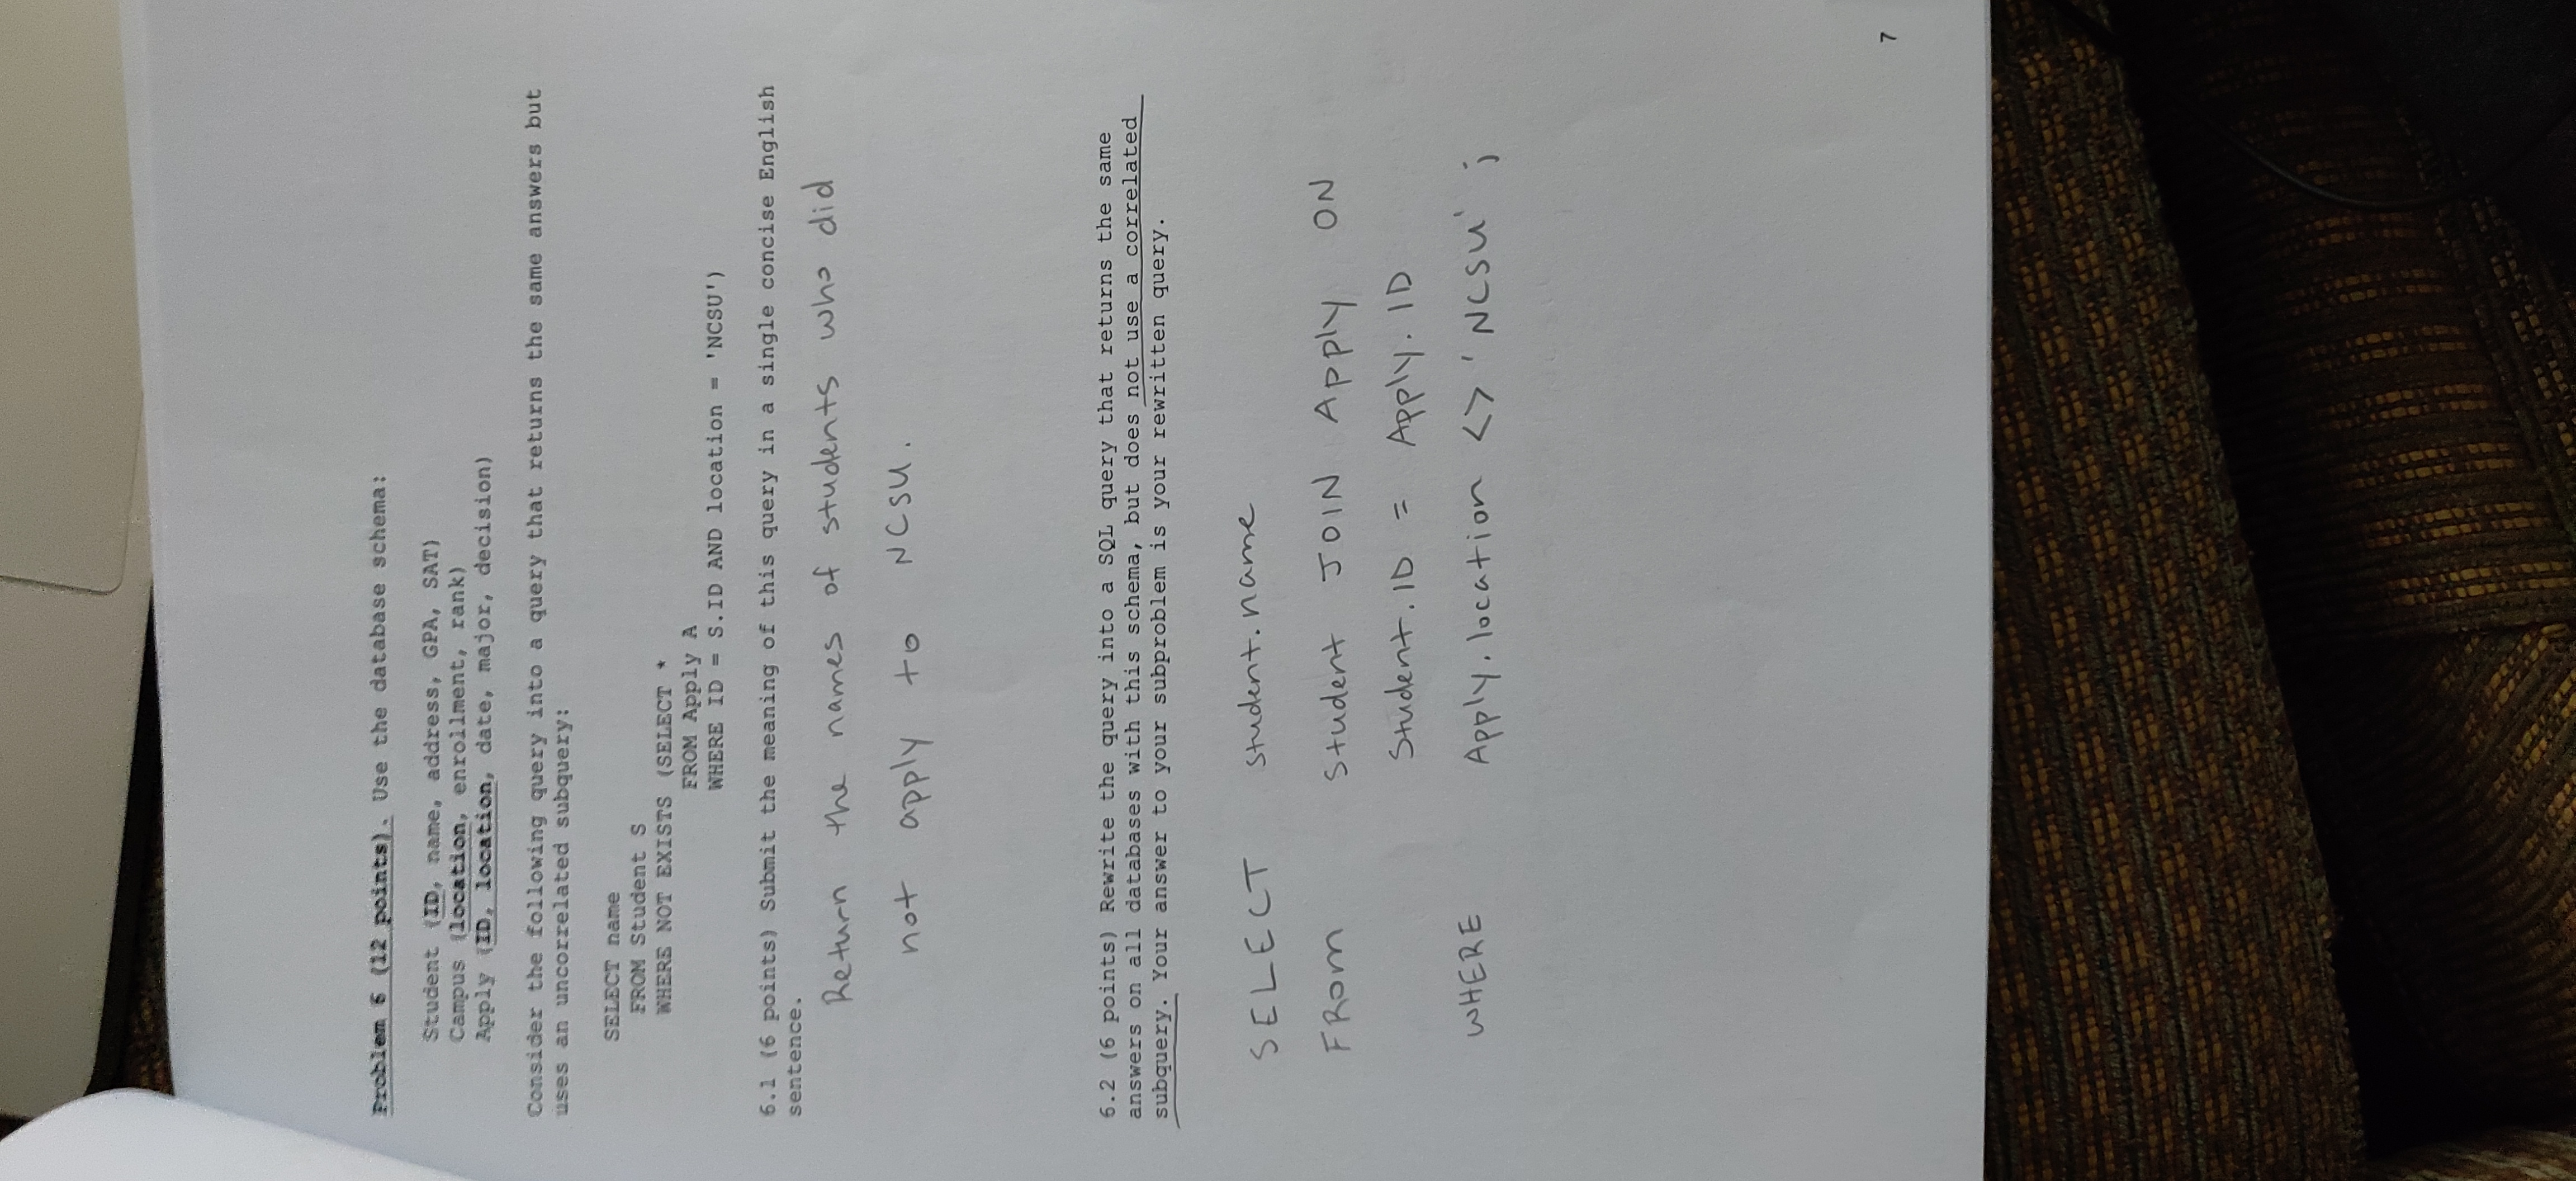 Problem 6 (12 points). Use the database schema:
Student (ID, name, address, GPA, SAT)
Campus (location, enrollment, rank)
Apply (ID, location, date, major, decision)
Consider the following query into a query that returns the same answers but
uses an uncorrelated subquery:
SELECT name
FROM Student S
WHERE NOT EXISTS (SELECT *
FROM Apply A
WHERE ID = S.ID AND location = 'NCSU')
6.1 (6 points) Submit the meaning of this query in a single concise English
sentence.
Return the names of students who did
not apply to NCSU.
6.2 (6 points) Rewrite the query into a SQL query that returns the same
answers on all databases with this schema, but does not use a correlated
subquery. Your answer to your subproblem is your rewritten query.
SELECT student.name
FROM Student JOIN Apply ON
Student.ID = Apply.ID
WHERE Apply.location <> 'NCSU' ;
7